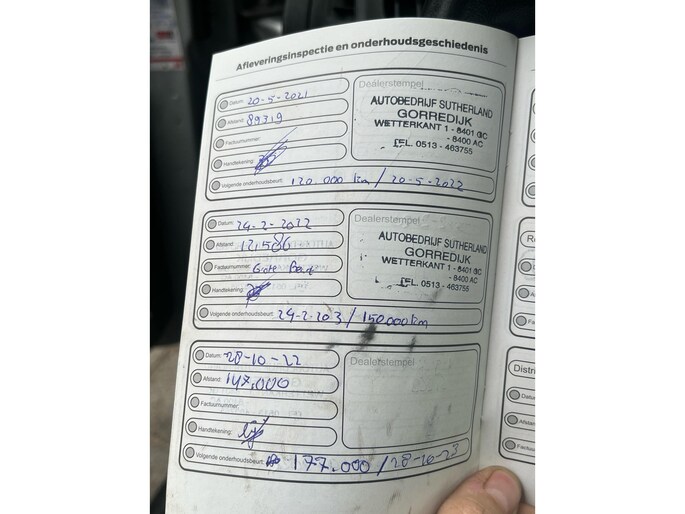 Afleveringsinspectie en onderhoudsgeschiedenis
Datum: 20-5-2021
Afstand: 89319
Factuurnummer:
Handtekening:
Volgende onderhoudsbeurt: 120.000 km / 20-5-2022
Dealerstempel
AUTOBEDRIJF SUTHERLAND
GORREDIJK
WETTERKANT 1 - 8401 GC
- 8400 AC
TEL. 0513 - 463755
Datum: 24-2-2022
Afstand:
Factuurnummer: Grote Beurt
Handtekening:
Volgende onderhoudsbeurt: 24-2-203 / 150000km
Dealerstempel
AUTOBEDRIJF SUTHERLAND
GORREDIJK
WETTERKANT 1 - 8401 GC
- 8400 AC
TEL. 0513 - 463755
Datum: 28-10-22
Afstand: 147.000
Factuurnummer:
Handtekening:
Volgende onderhoudsbeurt: 177.000 / 28-10-23
Dealerstempel
Distri
Datu
Afstan
Factu